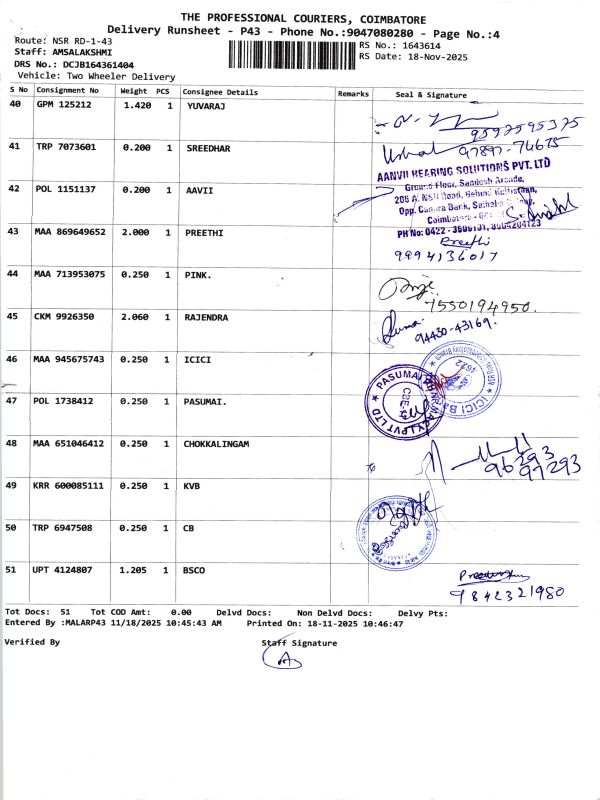 THE PROFESSIONAL COURIERS, COIMBATORE
Delivery Runsheet - P43 - Phone No.:9047080280 - Page No.:4
Route: NSR RD-1-43
RS No.: 1643614
Staff: AMSALAKSHMI
RS Date: 18-Nov-2025
DRS No.: DCJB164361404
Vehicle: Two Wheeler Delivery
S No Consignment No Weight PCS Consignee Details Remarks Seal & Signature
40 GPM 125212 1.420 1 YUVARAJ
9597595375
41 TRP 7073601 0.200 1 SREEDHAR
97897-74675
AANVII HEARING SOLUTIONS PVT. LTD
Ground Floor, Sandesh Arcade,
42 POL 1151137 0.200 1 AAVII
Coimbatore
43 MAA 869649652 2.000 1 PREETHI
Preethi
9994136017
44 MAA 713953075 0.250 1 PINK.
7550194950.
45 CKM 9926350 2.060 1 RAJENDRA
94430-43169.
46 MAA 945675743 0.250 1 ICICI
ICICI
47 POL 1738412 0.250 1 PASUMAI.
PASUMAI
PVT LTD
48 MAA 651046412 0.250 1 CHOKKALINGAM
96293
97293
49 KRR 600085111 0.250 1 KVB
50 TRP 6947508 0.250 1 CB
51 UPT 4124807 1.205 1 BSCO
9842321980
Tot Docs: 51 Tot COD Amt: 0.00 Delvd Docs: Non Delvd Docs: Delvy Pts:
Entered By :MALARP43 11/18/2025 10:45:43 AM Printed On: 18-11-2025 10:46:47
Verified By Staff Signature